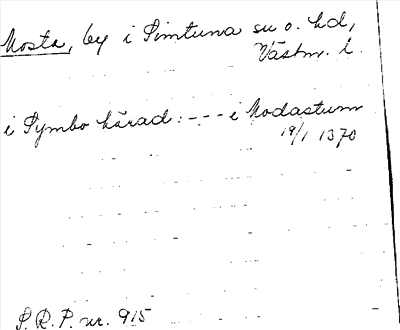 Mosta, by i Simtuna sn o. hd,
Västm. l.
i Symbo härad: - - - i Modastum
19/1 1370
S.R.P. nr. 915